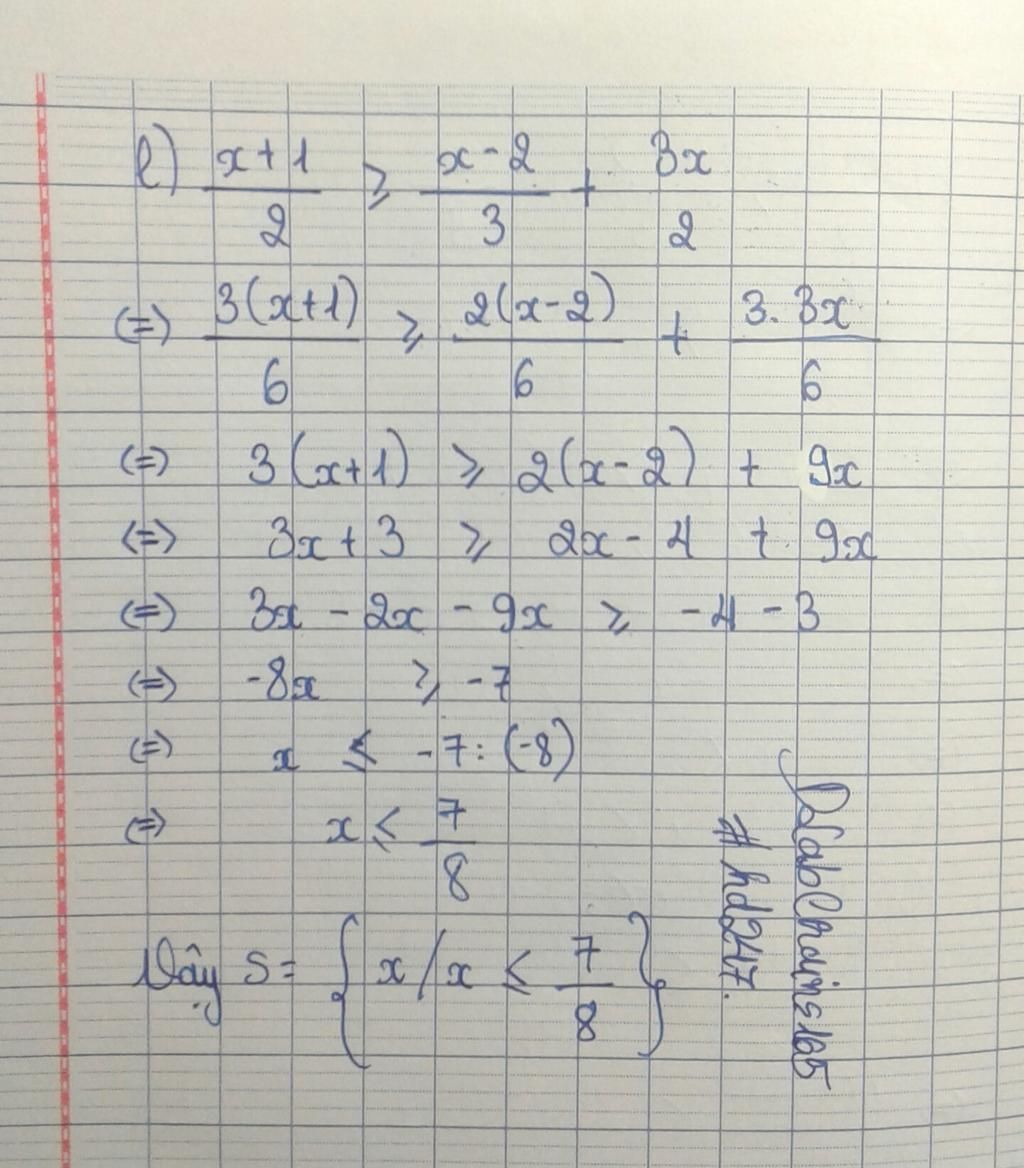 e) x+1/2 ≥ x-2/3 + 3x/2
(=) 3(x+1)/6 ≥ 2(x-2)/6 + 3.3x/6
(=) 3(x+1) ≥ 2(x-2) + 9x
(=) 3x+3 ≥ 2x-4 + 9x
(=) 3x - 2x - 9x ≥ -4-3
(=) -8x ≥ -7
(=) x ≤ -7:(-8)
(=) x ≤ 7/8
Vậy S = {x/x ≤ 7/8}
#hd247.